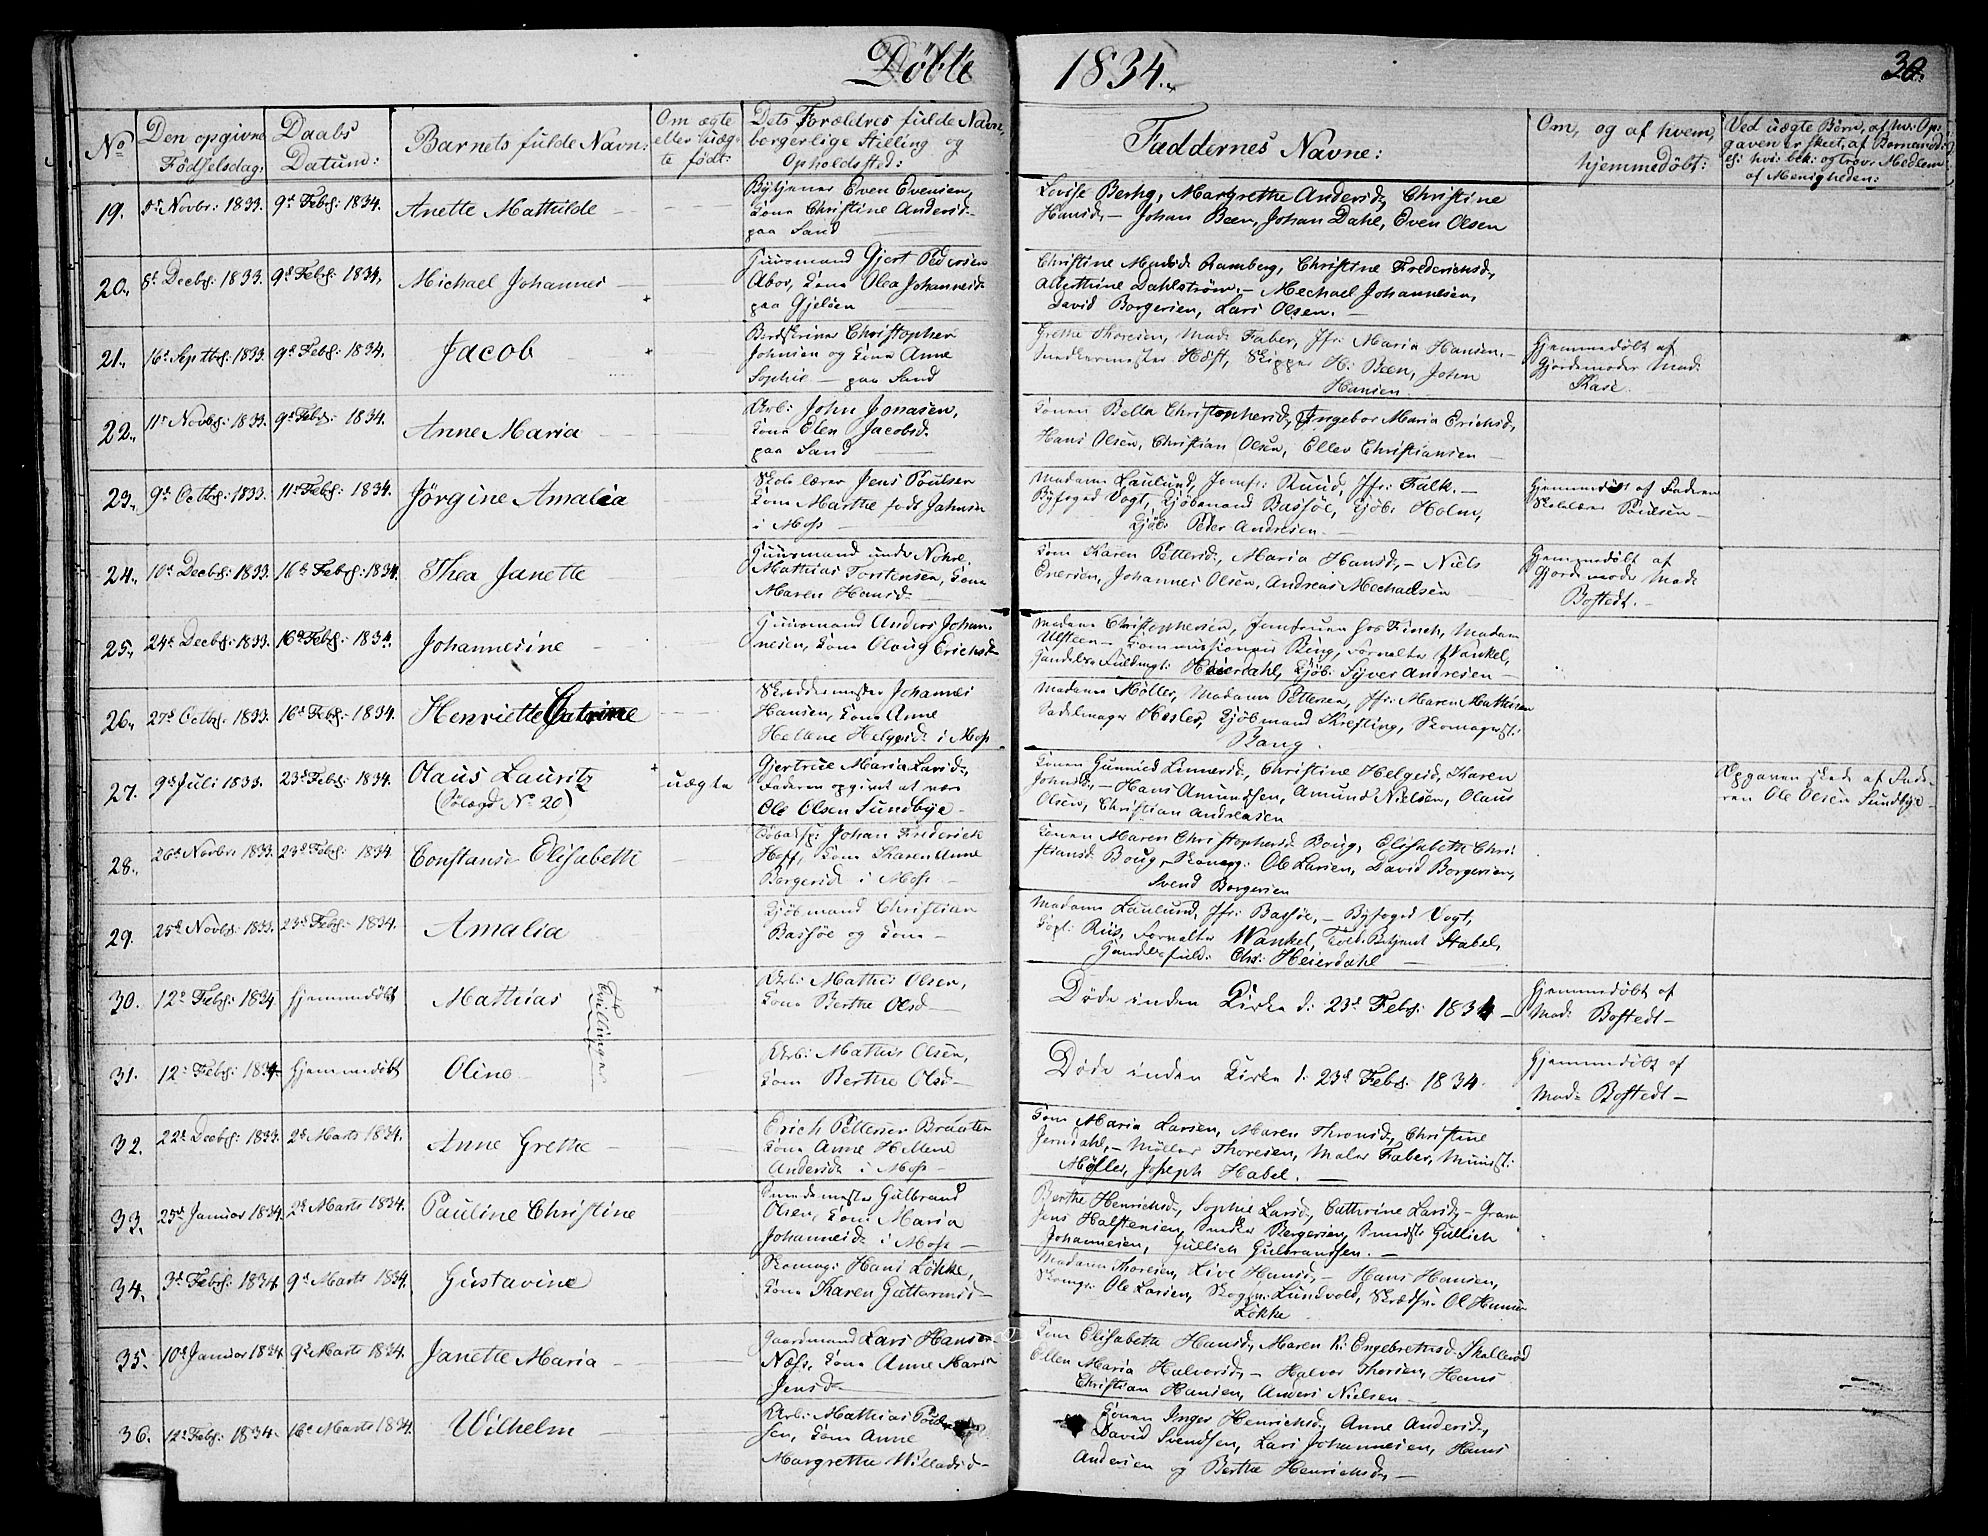 Døbte 1834.
30.
No
Den opgivne Fødselsdag:
Daabs Datum:
Barnets fulde Navn:
Om ægte eller uægte født:
Dets Forældres fulde Navn, borgerlige Stilling og Opholdssted:
Faddernes Navne:
Om, og af hvem, hjemmedøbt:
Ved uægte Børn, af hv: Opgaven er skeet, af
af Menigheden:
19. 5t Novbr: 1833. 9d Febr: 1834. Anette Mathilde
Even Evensen,
Kone Christine Andersd.
paa Sand
Lovise Berhg, Margrethe Andersd, Christine
Hansd, – Johan Been, Johan Dahl, Even Olsen
20. 8d Decbr: 1833. 9d Febr: 1834. Michael Johannes
Huusmand Gjert Pedersen
Abor, Kone Olea Johannesd
paa Gjelöen
Christine Madsd. Ramberg, Christine Frederichsd,
Alberthine Dahlström. – Mechael Johannesen,
David Borgersen, Lars Olsen. –
21. 16d Septbr: 1833. 9d Febr: 1834. Jacob
Christopher
Johnsen og Kone Anne
Sophie – paa Sand
Grethe Thoresen, Mad. Faber, Jfr: Maria Hansen. –
Snedkermester Höst, Skipper H: Been, John
Hansen
Hjemmedøbt af
Gjordemoder Mad:
Kase.
22. 11t Novbr: 1833. 9d Febr: 1834. Anne Maria
Arb: John Jonasen,
Kone Elen Jacobsd.
paa Sand
Konen Bella Christophersd, Ingebor Maria Erichsd,
Hans Olsen, Christian Olsen, Ellev Christiansen –
23. 9d Octbr: 1833. 11t Febr: 1834. Jörgine Amalia
Skolelærer Jens Poulsen
Kone Marthe født Jahnsen
i Moss –
Madame Laulund, Jomfr: Ruud, Jfr: Falk. –
Byfoged Vogt, Kjöbmand Bassöe, Kjöb: Holm,
Kjöb: Peder Andresen
Hjemmedøbt af Faderen
Skolelærer Poulsen –
24. 10d Decbr: 1833. 16d Febr: 1834. Thea Janette
Huusmand under Nohre,
Mathias Torstensen, Kone
Maren Hansd.
Kone Karen Pettersd, Maria Hansd, – Niels
Enersen, Johannes Olsen, Andreas Mechaelsen
Hjemmedøbt af
Gjordemoder Mad:
Bostedt. –
25. 24d Decbr: 1833. 16d Febr: 1834. Johannesine
Huusmand Anders Johannesen, Kone Olaug Erichsd –
Madame Christophersen, Jomfruen hos Finch, Madam
Ulsteen – Commissionair Reng, Forvalter Wankel,
Handelsfuldmgt: Heierdahl, Kjöb: Syver Andresen –
26. 27d Octbr: 1833. 16d Febr: 1834. Henriette Catrine
Skræddermester Johannes
Hansen, Kone Anne
Hellene Helgesd. i Moss
Madame Möller, Madame Pettersen, Jfr: Maren Mathisen
Sadelmager Hesler, Kjöbmand Krefting, Skomagerst:
Rang.
27. 9d Juli 1833. 23d Febr: 1834. Olaus Lauritz
(Sölægd No 20)
uægte
Gjertrue Maria Larsd,
Faderen opgivet at være
Ole Olsen Sundbye –
Konen Gunnild Linnersd, Christine Helgesd, Karen
Johnsd, – Hans Amundsen, Amund Nielsen, Olaus
Olsen, Christian Andreasen
Opgaven skede af Faderen Ole Olsen Sundbye –
28. 26d Novbr: 1833. 23d Febr: 1834. Constanse Elisabeth
Johan Frederick
Hoff, Kone Karen Anne
Borgersd i Moss
Konen Maren Christophersd Boug, Elisabeth Christiansd. Boug, Skomag: Ole Larsen, David Borgersen,
Svend Borgersen
29. 25d Novbr: 1833. 23d Febr: 1834. Amalia
Kjöbmand Christian
Bassöe og Kone –
Madame Laulund, Jfr: Bassöe, – Byfoged Vogt,
Capt: Riis, Forvalter Wankel, Told-Betjent Stabel,
Handelsfuld: Chr: Heierdahl –
30. 12t Febr: 1834. hjemmedøbt Mathias
Tvillinger
Arb: Mathis Olsen,
Kone Berthe Olsd
Døde inden Kirke d: 23d Febr: 1834 –
Hjemmedøbt af
Mad: Bostedt –
31. 12t Febr: 1834 hjemmedøbt Oline
Arb: Mathis Olsen,
Kone Berthe Olsd –
Døde inden Kirke d: 23d Febr: 1834.
Hjemmedøbt af
Mad: Bostedt –
32. 22d Decbr: 1833. 2d Marts 1834. Anne Grethe
Erich Pettersen Braaten
Kone Anne Hellene
Andersd i Moss –
Kone Maria Larsen, Maren Thronsd, Christine
Jerndahl, – Möller Thoresen, Maler Faber,
Möller, Joseph Habel. –
33. 25d Januar 1834. 2d Marts 1834. Pauline Christine
Smedemester Gulbrand
Olsen, Kone Maria
Johannesd i Moss –
Berthe Henrichsd, Sophie Larsd, Cathrine Larsd, – Gram
Jens Halstensen, Snedker Bergersen, Smedst: Gullich
Johannesen, Gullich Gulbrandsen. –
34. 3d Febr: 1834. 9d Marts 1834. Gustavine
Skomag: Hans Lökke,
Kone Karen Guttormsd –
Madame Thoresen, Live Hansd, – Hans Hansen,
Skomgr: Ole Larsen, Lundvold, Ol Hansen
Lökke
35. 10d Januar 1834. 9d Marts 1834. Janette Maria
Gaardmand Lars Hansen
Næss, Kone Anne Maria
Jensd –
Kone Elisabeth Hansd, Maren K: Engebretsd. Skallerød
Ellen Maria Halvorsd, – Halvor Thorsen, Hans
Christian Hansen, Anders Nielsen –
36. 12t Febr: 1834. 16d Marts 1834. Wilhelm
Arb: Mathias
Kone Anne
Margrethe Willadsd –
Konen Inger Henrichsd, Anne Andersd,
David Svendsen, Lars Johannesen, Hans
Andersen og Berthe Henrichsd, –